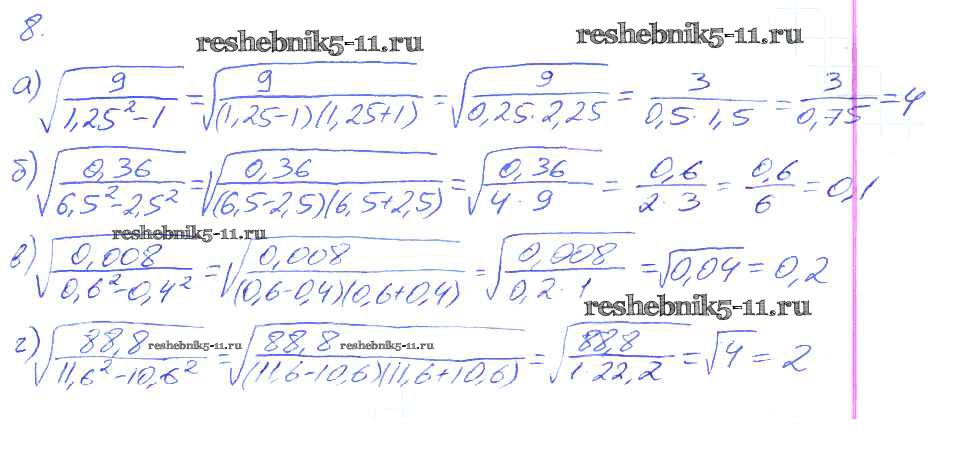 8.
reshebnik5-11.ru
reshebnik5-11.ru
а) √(9/(1,25²-1)) = √(9/((1,25-1)(1,25+1))) = √(9/(0,25·2,25)) = 3/(0,5·1,5) = 3/0,75 = 4
б) √(0,36/(6,5²-2,5²)) = √(0,36/((6,5-2,5)(6,5+2,5))) = √(0,36/(4·9)) = 0,6/(2·3) = 0,6/6 = 0,1
reshebnik5-11.ru
в) √(0,008/(0,6²-0,4²)) = √(0,008/((0,6-0,4)(0,6+0,4))) = √(0,008/(0,2·1)) = √0,04 = 0,2
reshebnik5-11.ru
г) √(88,8/(11,6²-10,6²)) = √(88,8/((11,6-10,6)(11,6+10,6))) = √(88,8/(1·22,2)) = √4 = 2
reshebnik5-11.ru
reshebnik5-11.ru